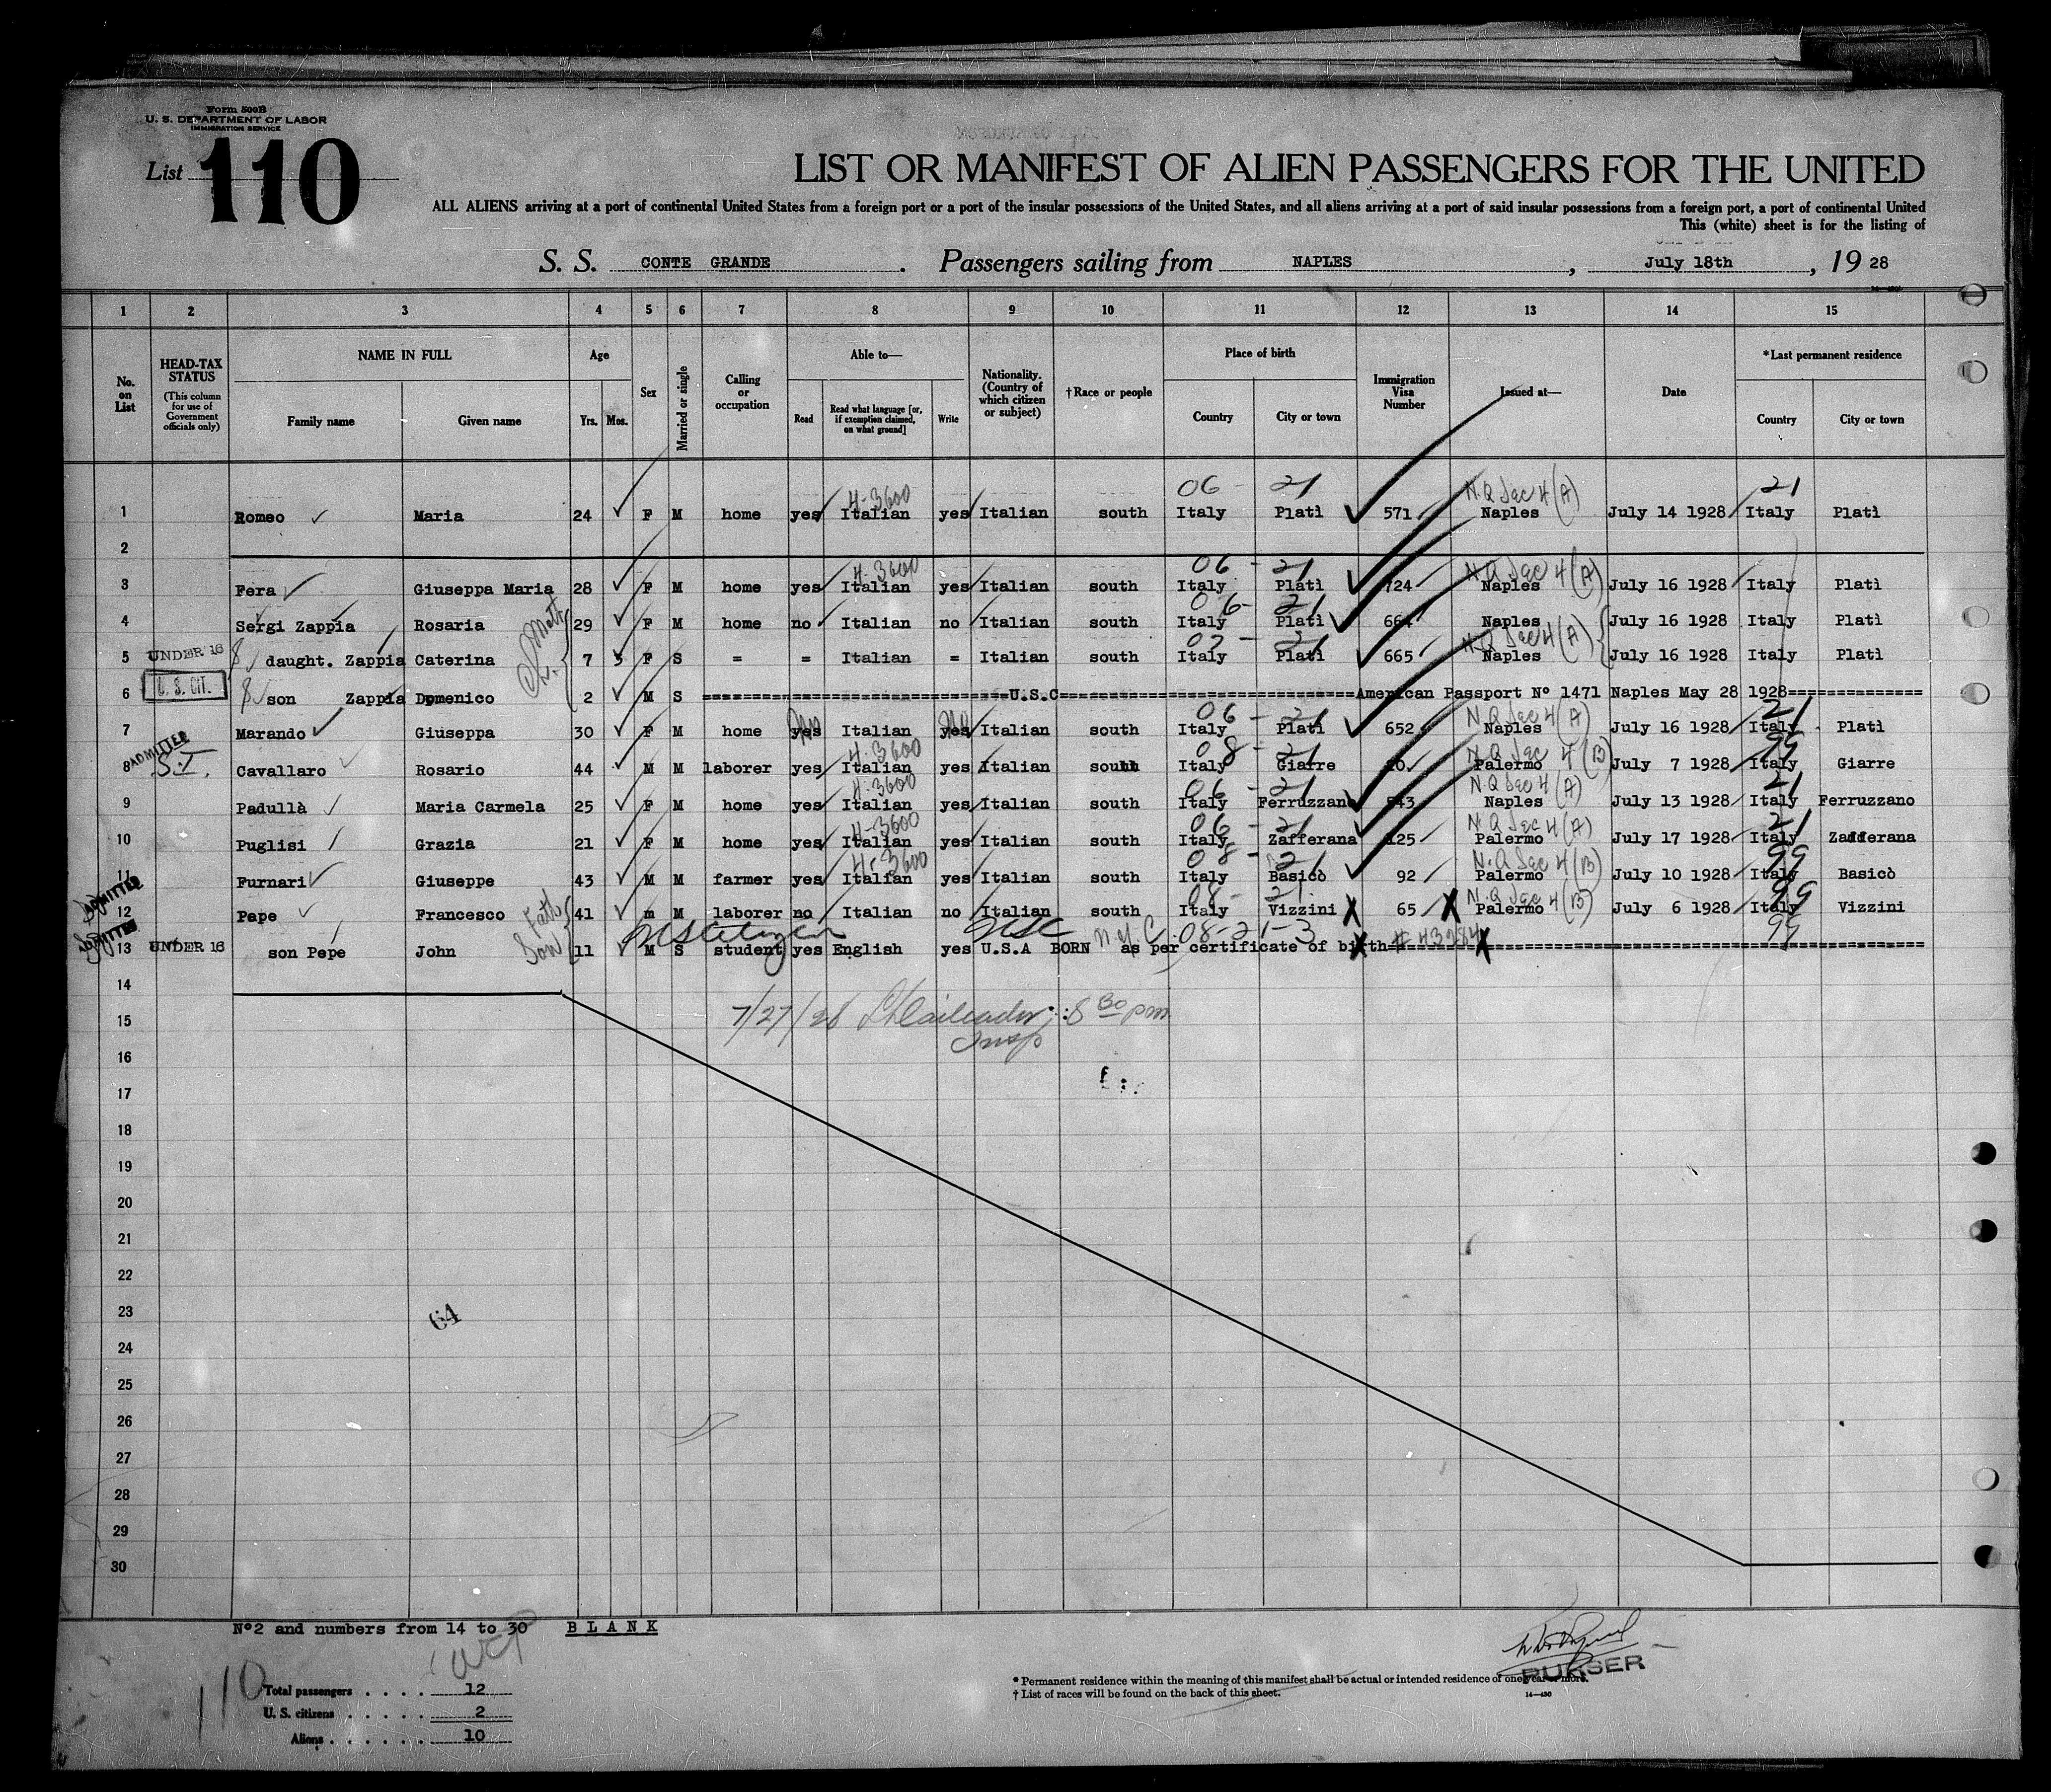 Form 500B
U. S. DEPARTMENT OF LABOR
IMMIGRATION SERVICE
List 110
LIST OR MANIFEST OF ALIEN PASSENGERS FOR THE UNITED
ALL ALIENS arriving at a port of continental United States from a foreign port or a port of the insular possessions of the United States, and all aliens arriving at a port of said insular possessions from a foreign port, a port of continental United
This (white) sheet is for the listing of
S. S. CONTE GRANDE. Passengers sailing from NAPLES, July 18th, 19 28
1 2 3 4 5 6 7 8 9 10 11 12 13 14 15
No. on List
HEAD-TAX STATUS (This column for use of Government officials only)
NAME IN FULL Family name Given name
Age Yrs. Mos.
Sex
Married or single
Calling or occupation
Able to— Read Read what language [or, if exemption claimed, on what ground] Write
Nationality. (Country of which citizen or subject)
†Race or people
Place of birth Country City or town
Immigration Visa Number
Issued at—
Date
*Last permanent residence Country City or town
06 - 21 4-3600 N.Q Sec 4 (A) 21
1 Romeo Maria 24 F M home yes Italian yes Italian south Italy Platì 571 Naples July 14 1928 Italy Platì
2
06 - 21 4-3600 N.Q Sec 4 (A)
3 Fera Giuseppa Maria 28 F M home yes Italian yes Italian south Italy Platì 724 Naples July 16 1928 Italy Platì
06 - 21
4 Sergi Zappia Rosaria 29 F M home no Italian no Italian south Italy Platì 664 Naples July 16 1928 Italy Platì
07 - 21 N.Q Sec 4 (A)
5 UNDER 16 daught. Zappia Caterina 7 3 F S = = Italian = Italian south Italy Platì 665 Naples July 16 1928 Italy Platì
6 U. S. CIT. son Zappia Domenico 2 M S ====U.S.C====American Passport Nº 1471 Naples May 28 1928====
06 - 21 N.Q Sec 4 (A) 21
7 Marando Giuseppa 30 F M home yes Italian yes Italian south Italy Platì 652 Naples July 16 1928 Italy Platì
ADMITTED S.I. 4-3600 08 - 21 N.Q Sec 4 (B) 99
8 Cavallaro Rosario 44 M M laborer yes Italian yes Italian south Italy Giarre 20 Palermo July 7 1928 Italy Giarre
4-3600 06 - 21 N.Q Sec 4 (A) 21
9 Padullà Maria Carmela 25 F M home yes Italian yes Italian south Italy Ferruzzano 543 Naples July 13 1928 Italy Ferruzzano
4-3600 06 - 21 N.Q Sec 4 (A) 21
10 Puglisi Grazia 21 F M home yes Italian yes Italian south Italy Zafferana 125 Palermo July 17 1928 Italy Zafferana
4-3600 08 - 21 N.Q Sec 4 (B) 99
11 Furnari Giuseppe 43 M M farmer yes Italian yes Italian south Italy Basicò 92 Palermo July 10 1928 Italy Basicò
ADMITTED 08 - 21 N.Q Sec 4 (B) 99
12 Pepe Francesco Fath 41 m M laborer no Italian no Italian south Italy Vizzini 65 Palermo July 6 1928 Italy Vizzini
ADMITTED US Citizen USC N.Y.C. 08-21-3 # 43284 99
13 UNDER 16 son Pepe John Son 11 M S student yes English yes U.S.A BORN as per certificate of birth====
14
7/27/28 8 30 pm
15
Insp
16
17
18
19
20
21
22
23
64
24
25
26
27
28
29
30
Nº2 and numbers from 14 to 30 BLANK
110
Total passengers . . . . 12
U. S. citizens . . . . . 2
Aliens . . . . . . 10
PURSER
* Permanent residence within the meaning of this manifest shall be actual or intended residence of one year or more.
† List of races will be found on the back of this sheet.
14—430